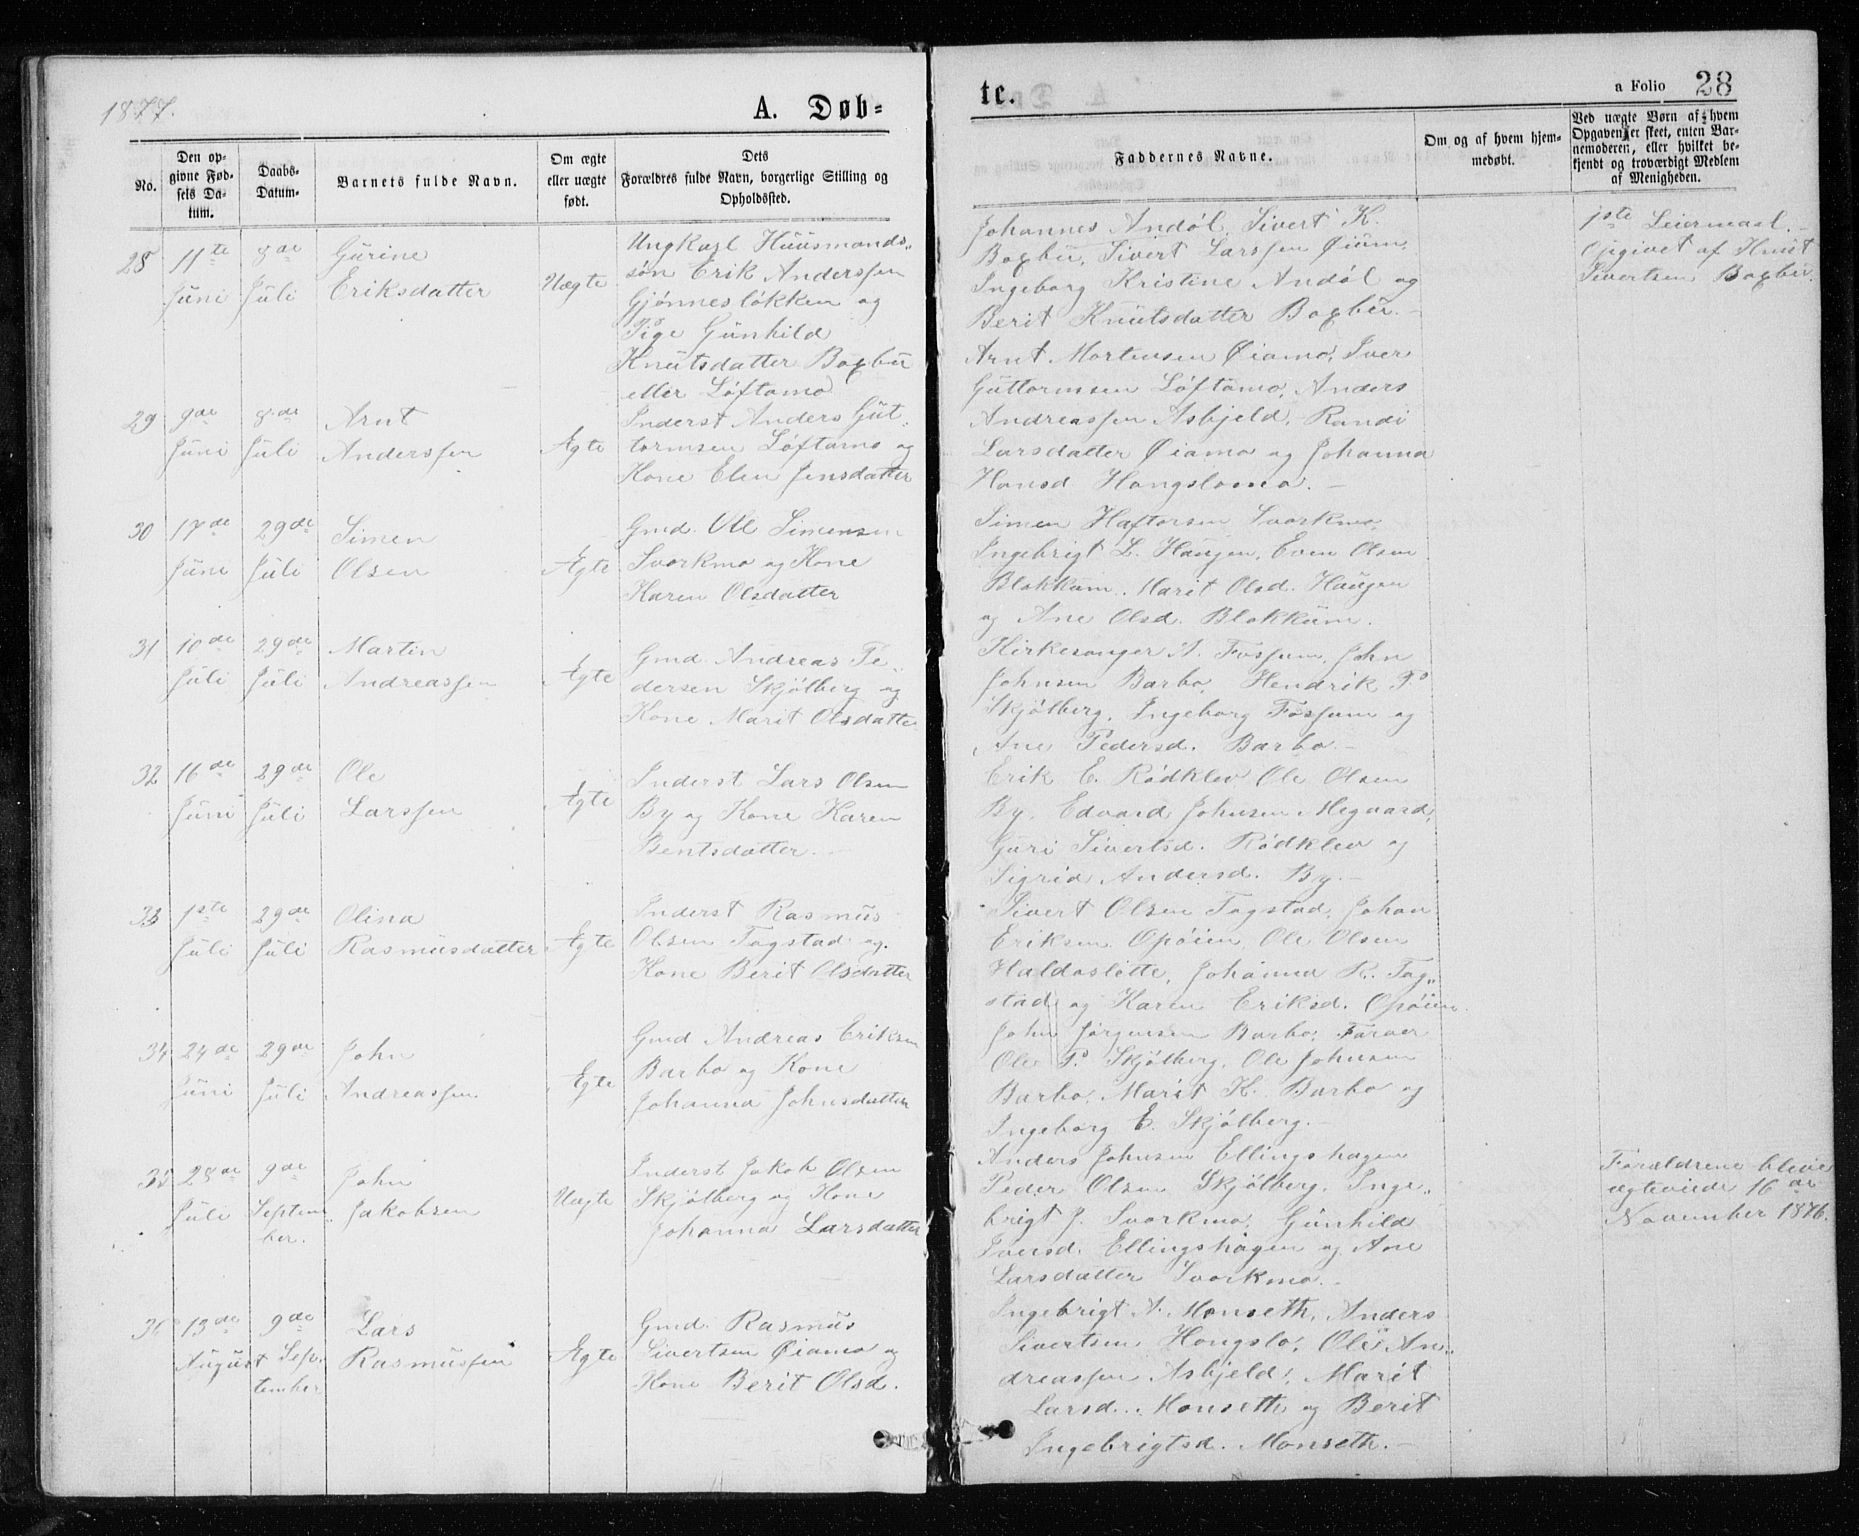 1877.
A. Døb=
te.
a Folio 28
No.
Den opgivne Fødsels Datum.
Daabs-Datum.
Barnets fulde Navn.
Om ægte eller uægte født.
Dets Forældres fulde Navn, borgerlige Stilling og Opholdssted.
Faddernes Navne.
Om og af hvem hjemmedøbt.
Ved uægte Børn af hvem Opgaven er skeet, enten Barnemoderen, eller hvilket bekjendt og troværdigt Medlem af Menigheden.
28 11te Juni 8de Juli
Gurine
Eriksdatter
Uægte
Ungkarl Huusmands„
søn Erik Anderssen
Gjønnesløkken og
Pige Gunhild
Knutsdatter Boxbu
eller Løftamo
Johannes Andøl, Sivert K.
Boxbu, Sivert Larssen Øium,
Ingeborg Kristine Andøl og
Berit Knutsdatter Boxbu. –
1ste Leiermaal. –
Opgivet af Knut
Sivertsen Boxbu.
29 9de Juni 8de Juli
Arnt
Anderssen
Ægte
Inderst Anders Gut„
tormsen Løftamo og
Kone Elen Jensdatter
Arnt Mortensen Øiamo, Iver
Guttormsen Løftamo, Anders
Andreassen Asbjeld, Randi
Larsdatter Øiamo og Johanna
Hansd. Hongsloma. –
30 17de Juni 29de Juli
Simen
Olsen
Ægte
Gmd. Ole Simensen
Svorkmo og Kone
Karen Olsdatter
Simen Haftorsen Svorkmo,
Ingebrigt L. Haugen, Even Olsen
Blokkum, Marit Olsd. Haugen
og Ane Olsd. Blokkum.
31 10de Juli 29de Juli
Martin
Andreassen
Ægte
Gmd. Andreas Pe„
dersen Skjølberg og
Kone Marit Olsdatter
Kirkesanger A. Fossum, John
Johnsen Barbo, Hendrik P.
Skjølberg, Ingeborg Fossum og
Ane Pedersd. Barbo. –
32 16de Juni 29de Juli
Ole
Larssen
Ægte
Inderst Lars Olsen
By og Kone Karen
Bentsdatter. –
Erik E. Rødklev Ole Olsen
By, Edvard Johnsen Megaard,
Guri Sivertsd. Rødklev og
Sigrid Andersd. By. –
33 1ste Juli 29de Juli
Olina
Rasmusdatter
Ægte
Inderst Rasmus
Olsen Togstad og
Kone Berit Olsdatter
Sivert Olsen Togstad, Johan
Eriksen Opøien, Ole Olsen
Haldosløtte, Johanna R. Tog„
stad og Karen Eriksd. Opøien
34 24de Juni 29de Juli
John
Andreassen
Ægte
Gmd Andreas Eriksen
Barbo og Kone
Johanna Johnsdatter
John Jørgensen Barbo, Farver
Ole P. Skjølberg, Ole Johnsen
Barbo, Marit K. Barbo og
Ingeborg E. Skjølberg. –
35 28de Juli 9de September.
John
Jakobsen
Uægte
Inderst Jakob Olsen
Skjølberg og Kone
Johanna Larsdatter
Anders Johnsen Ellingshagen
Peder Olsen Skjølberg, Inge„
brigt J. Svorkmo, Gunhild
Iversd. Ellingshagen og Ane
Larsdatter Svorkmo. –
Forældrene bleve
ægteviede 16de
November 1876.
36 13de August 9de September
Lars
Rasmussen
Ægte
Gmd. Rasmus
Sivertsen Øiamo og
Kone Berit Olsd.
Ingebrigt A. Monseth, Anders
Sivertsen Hongslo, Ole An„
dreassen Asbjeld, Marit
Larsd. Monseth og Berit
Ingebrigtsd. Monseth. –